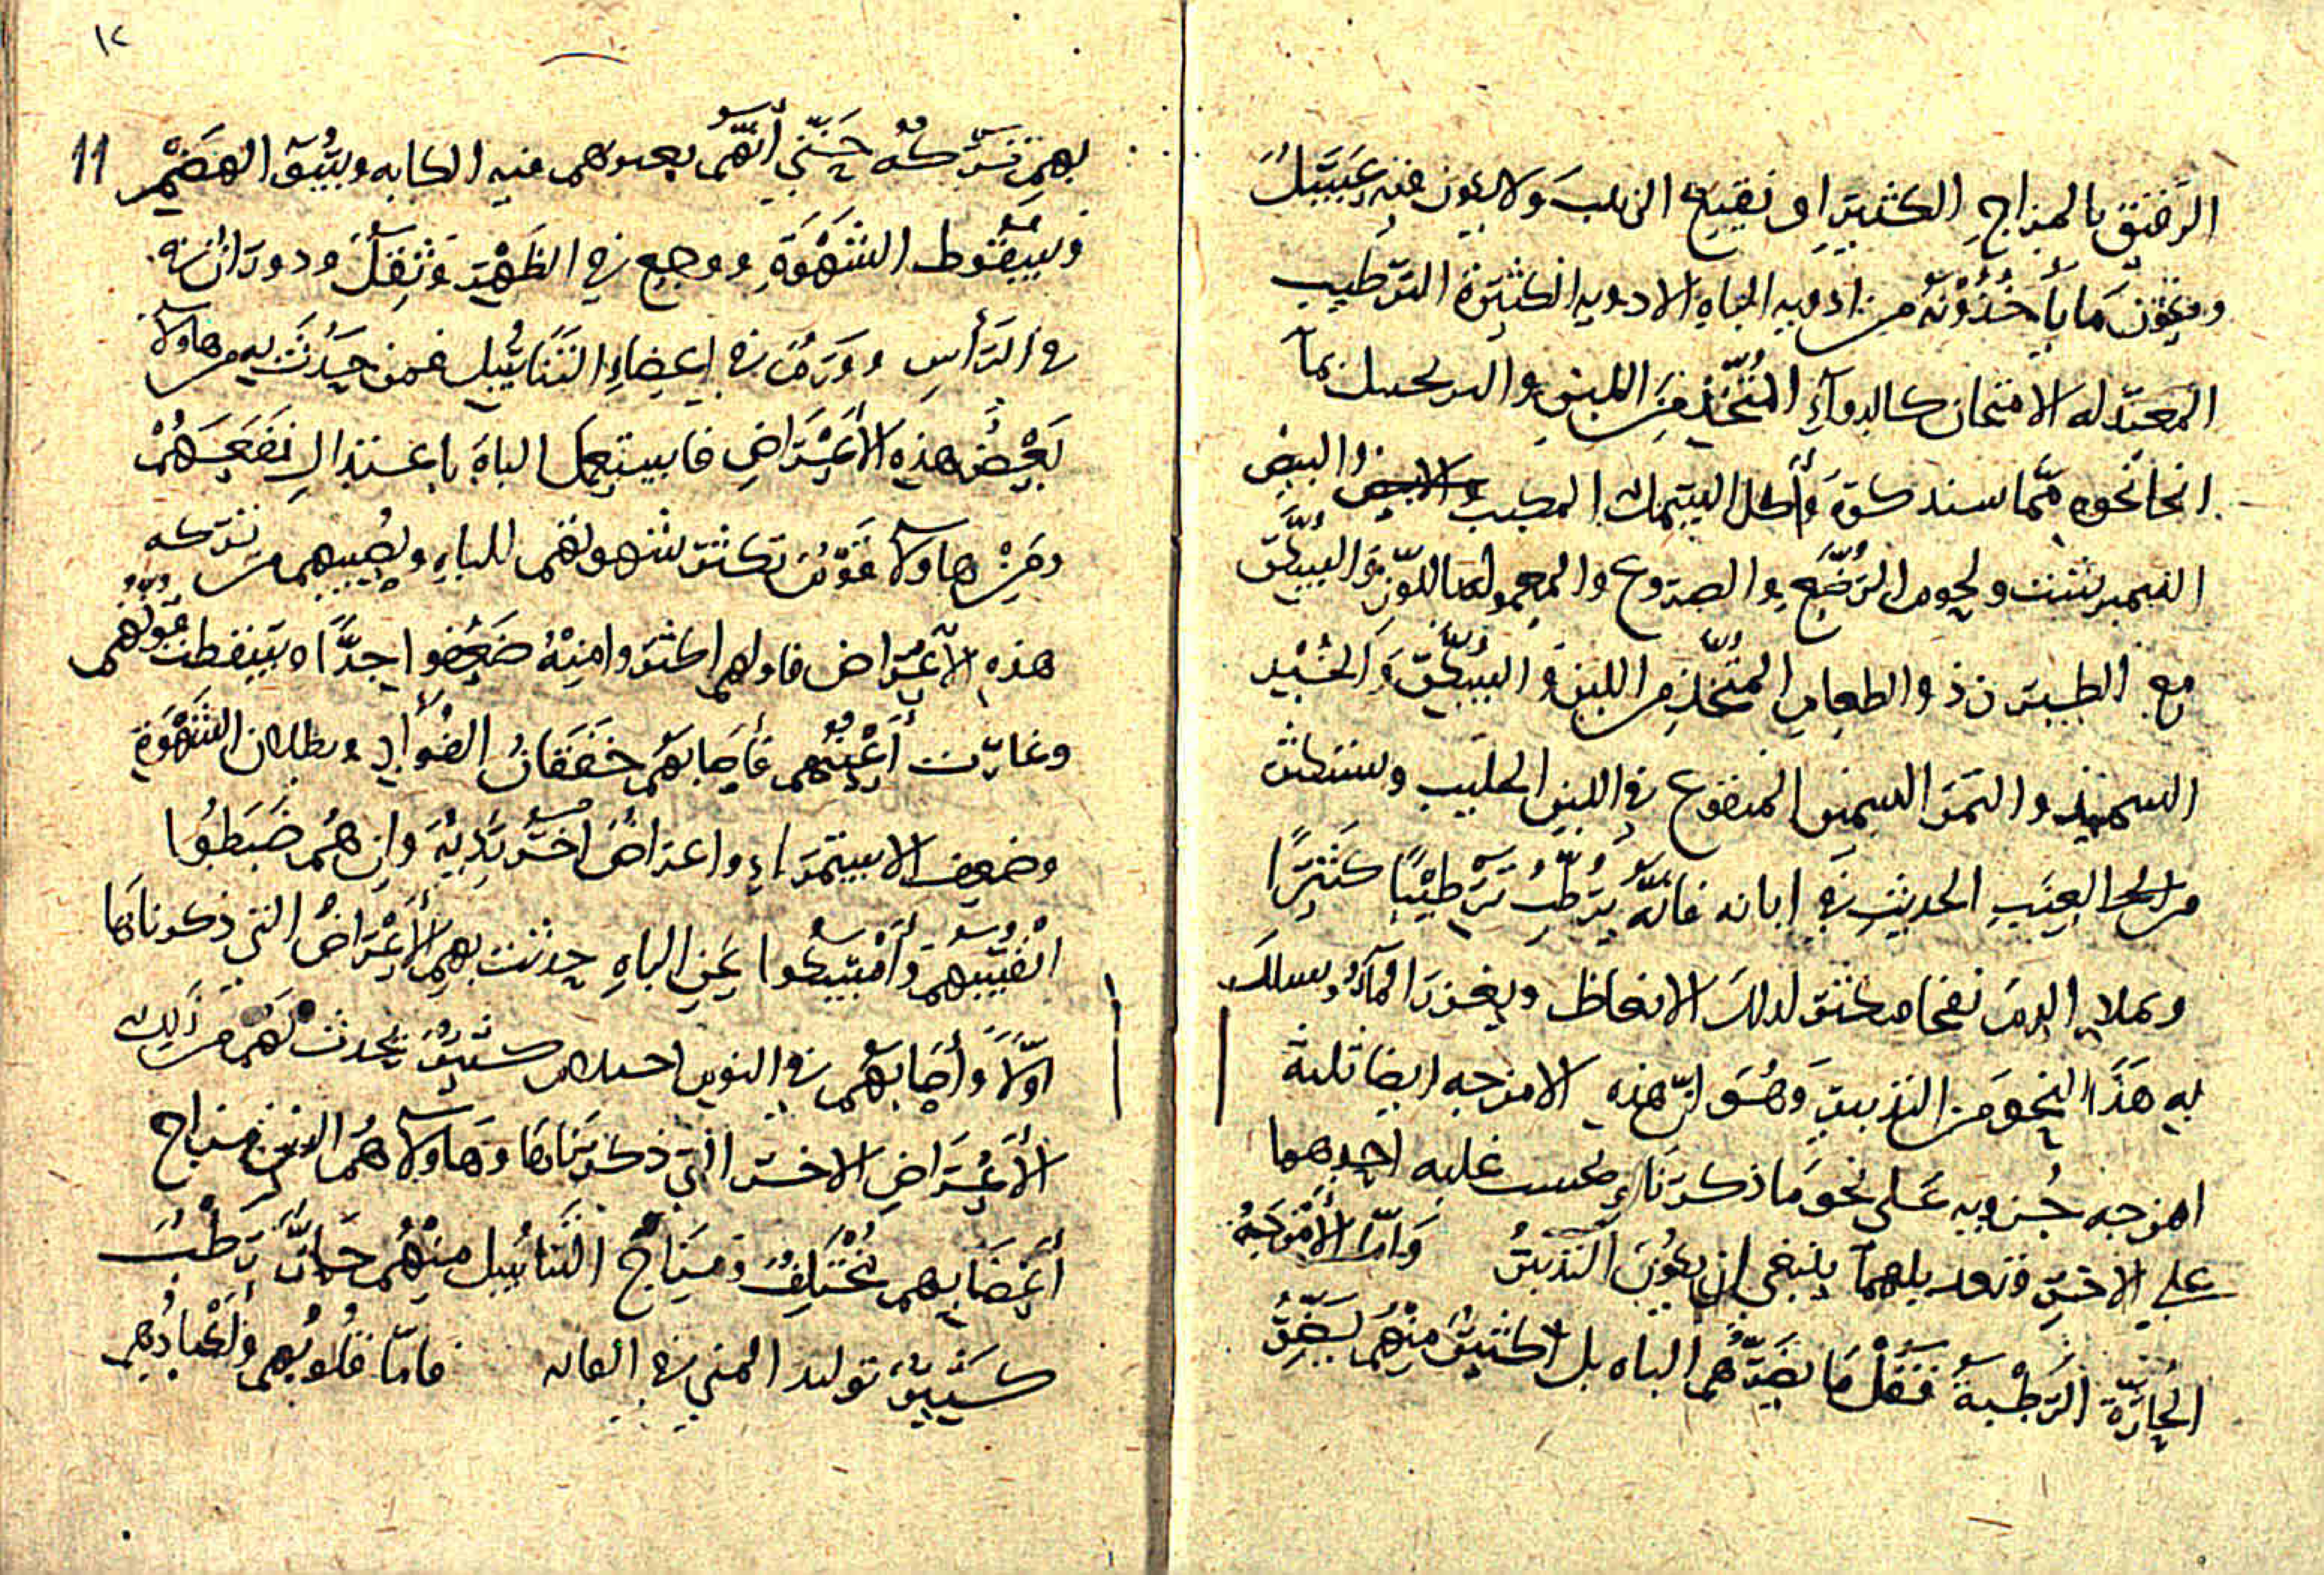 الرقيق بالمزاج الكثير او نقيع الزبيب ولا يكون فيه عسل
ويكون ما يأخذونه من ادويه الباه الادويه الكثيرة الترطيب
المعتدله الاسخان كالدوآء المتخذ من اللبن و بمآ
نحا نحوه ممّا سنذكره وأكل السمك المكبب والبيض
النيمبرشت ولحوم الرضّع والضروع والمعمول باللوز والسكّر
مع والطعام المتّخذ من اللبن والسكّر والخبز
السميذ والتمر السمين المنقوع في اللبن الحليب ويستكثر
من العنب الحديث في ابانه فانّه يرطب ترطيبًا كثيرًا
ويملا الدم نفخا فيكثر لذلك الانعاظ ويغزر المآء ويسلك
به هذا النحو من التدبير وهو انّ هذه الامزجه ايضا ثلثة
امزجه جزويه على نحو ما ذكرنا عليه احدهما
على الاخر وتعديلهما ينبغي ان يكون التدبير وامّا الأمزجة
الحارّة الرّطبة فقلّ ما يضرّهم الباه بل اكثر منهم يضرّ
١٢
11
بهم تركه حتّى أنّهم يعتريهم منه الكابه وسوء الهضم
وسقوط الشهوة ووجع في الظهر وثقل ودوران
في الرأس وورم في اعضاء التناسل فمن حدث به من هاولاء
بعض هذه الأعراض فاستعمل الباه باعتدال نفعهم
ومن هاولاء قوم تكثر شهوتهم للباه ويصيبهم من تركه
هذه الأعراض فاولهم اكثروا منه ضعفوا جدّا وسقطت قوتهم
وغارت أعينهم فأصابهم خفقان الفؤاد وبطلان الشهوة
وضعف الاستمراء واعراض أخر رديّة وان هم ضبطوا
انفسهم وأمسكوا عن الباه حدثت بهم الأعراض التي ذكرناها
اوّلاً وأصابهم في النوم احتلام كثير يحدث لهم من ذلك
الأعراض الاخر التي ذكرناها وهاولاء هم الذين مزاج
أعضايهم مختلف ومزاج التناسل منهم حارّ رطب
كثير توليد المني في الغاية فامّا قلوبهم وأكبادهم